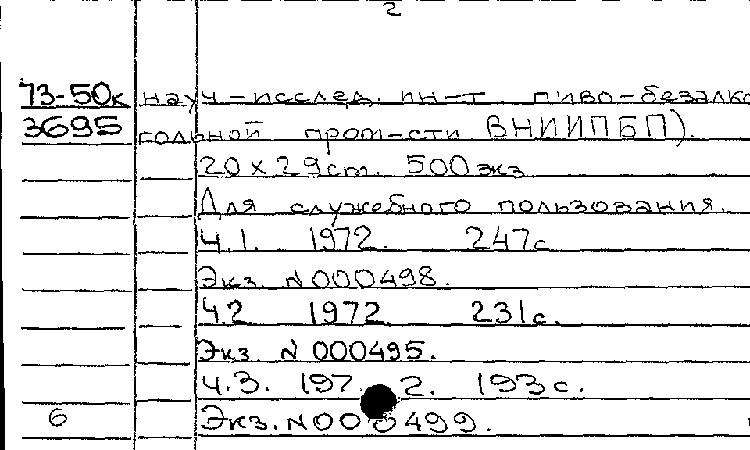 2
73-50к науч-исслед. ин-т пиво-безалко
3695 гольной пром-сти ВНИИПБП).
20 х 29 cm. 500 экз
Для служебного пользования.
Ч.1. 1972. 247с
Экз. N 000498.
Ч.2 1972 231с.
Экз. N 000495.
Ч.3. 197 2. 193с.
6 Экз. N 000499.